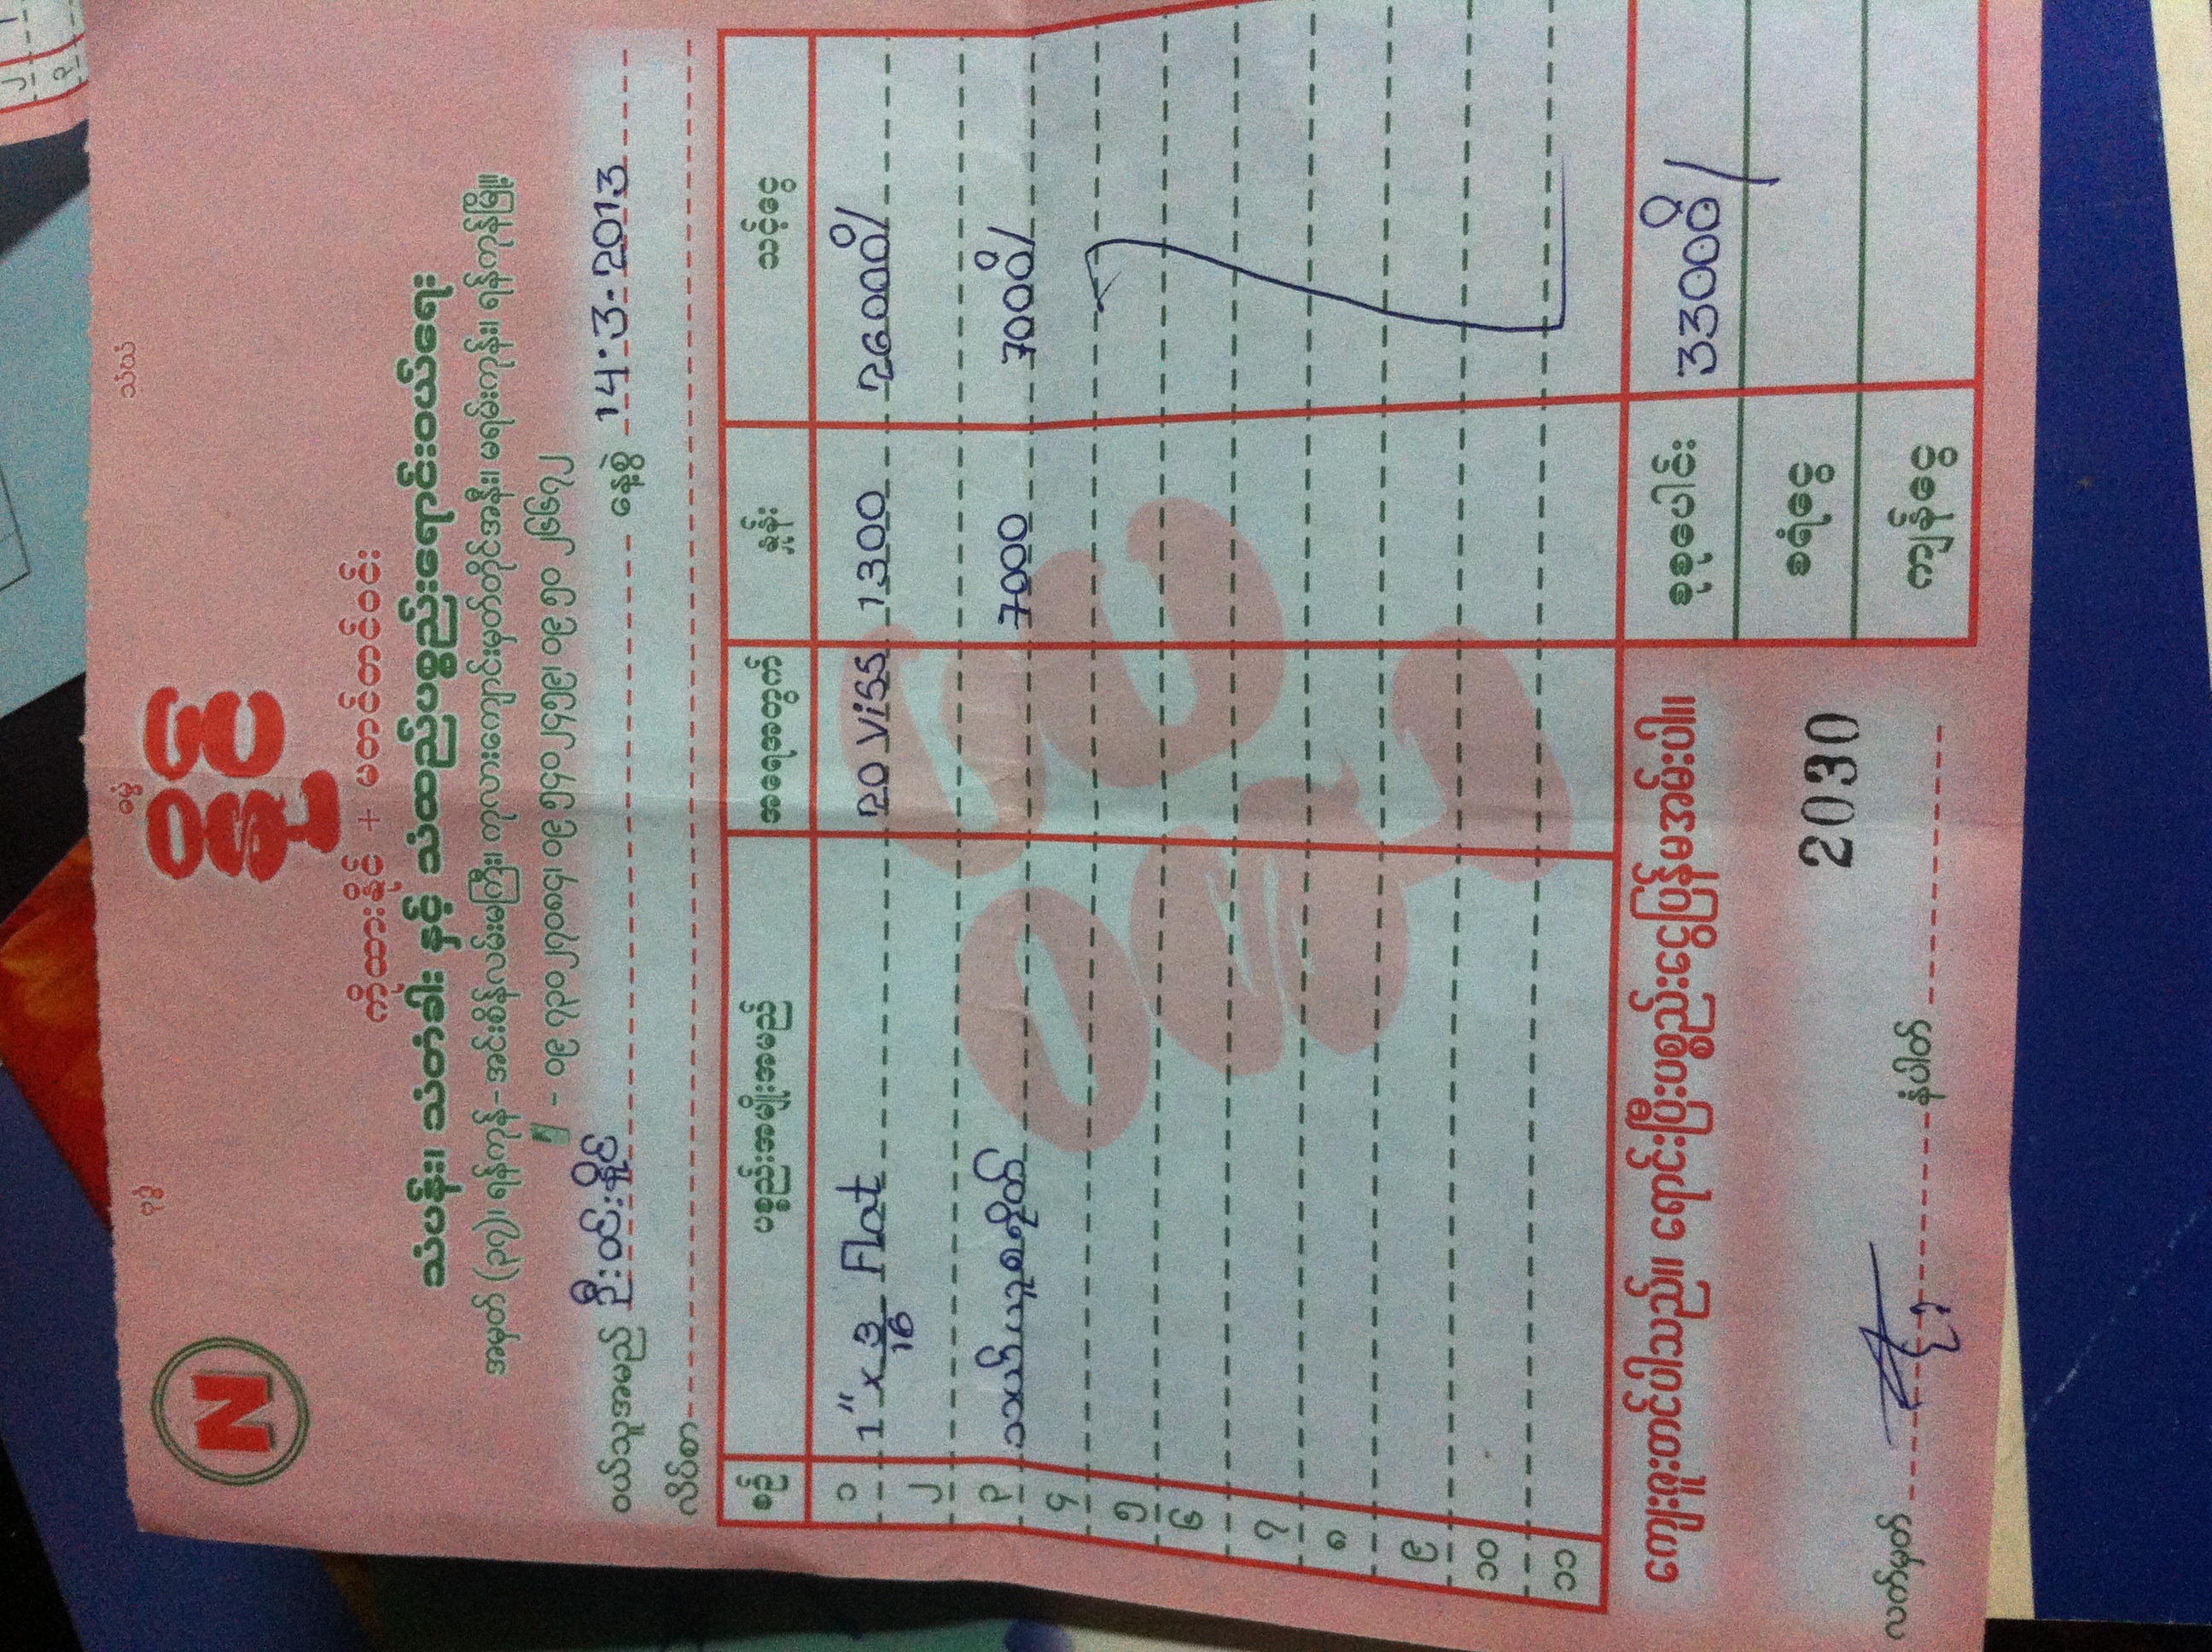 ဗုဒ္ဓံ ဓမ္မံ သံဃံ
N
နိုင်
ကိုထားနိုင် + မတင်တင်ဝင်း
သံပန်း၊ သံတံခါး နှင့် သံထည်ပစ္စည်းရောင်းဝယ်ရေး
အမှတ် (၃၇)၊ ရန်ကုန် - အင်းစိန်လမ်းမကြီး၊ ကုလားကျောင်းမှတ်တိုင်အနီး၊ မရမ်းကုန်း၊ ရန်ကုန်မြို့။
- ၀၉ ၇၃၀၂၇၀၈၄၊ ၀၉ ၅၄၀၂၄၅၉၊ ၀၉ ၅၀ ၂၆၆၇၂
ဝယ်သူအမည် ဦးဝင်းနိုင် နေ့စွဲ 14.3.2013
လိပ်စာ
စဉ် ပစ္စည်းအမျိုးအမည် အရေအတွက် နှုန်း သင့်ငွေ
၁ 1" x 3/16 Flat 20 Viss 1300 26000/
၂
၃ 7000 7000/
၄
၅
၆
၇
၈
၉
၁၀
၁၁
ကျေးဇူးတင်ပါသည်။ ရောင်းပြီးပစ္စည်းငွေပြန်မအမ်းပါ။ စုစုပေါင်း 33000/
2030 စရံငွေ
လက်မှတ် နံပါတ် ကျန်ငွေ